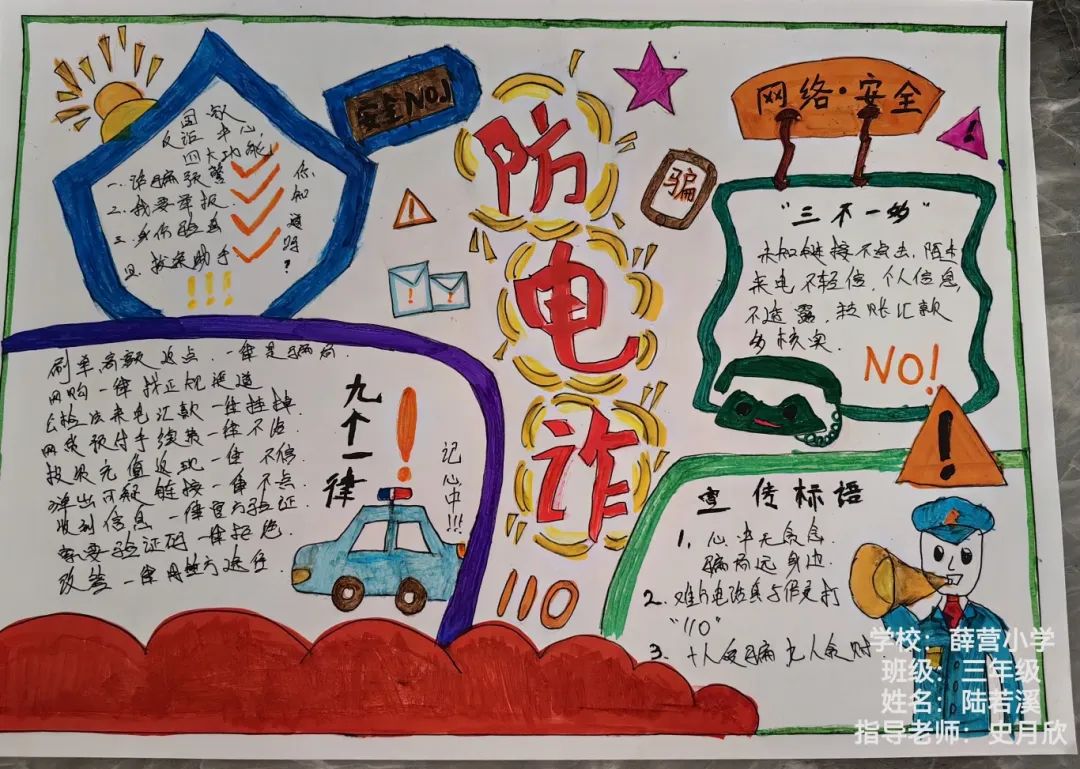 国家
反诈中心
四大功能
一.诈骗预警
二.我要举报
三.身份验真
四.报案助手
!!!
你知道吗?
安全NO.1
防电诈
110
骗
网络·安全
!
!
"三不一多"
未知链接不点击,陌生
来电不轻信,个人信息,
不透露,转账汇款
多核实.
NO!
!
刷单 返点.一律是骗局.
网购一律找正规渠道
来电汇款一律挂掉
网贷预付手续费一律不沾.
返现一律不信.
弹出可疑链接一律不点
收到信息一律官方验证
索要验证码一律拒绝.
一律
九个一律
!
记心中!!!
宣传标语
1.心中无贪念.
骗局远身边.
2.难分电话真与假更打
"110"
3.十人受骗九人贪财.
学校:薛营小学
班级:三年级
姓名:陆若溪
指导老师:史月欣